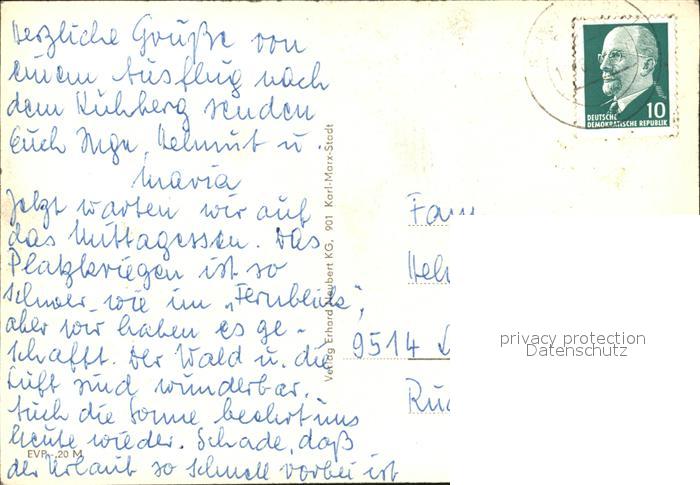 Herzliche Grüße von
einem Ausflug nach
dem Kuhberg senden
Euch Inge, Helmut u.
Maria
Jetzt warten wir auf
das Mittagessen. Das
Platzkriegen ist so
schwer wie im „Fernblick",
aber wir haben es ge-
schafft. Der Wald u. die
Luft sind wunderbar.
Auch die Sonne beehrt uns
heute wieder. Schade, daß
der Urlaub so schnell vorbei ist
EVP -,20 M
Verlag Erhard Neubert KG, 901 Karl-Marx-Stadt
DEUTSCHE
DEMOKRATISCHE REPUBLIK
10
Fam
Hel
9514
privacy protection
Datenschutz